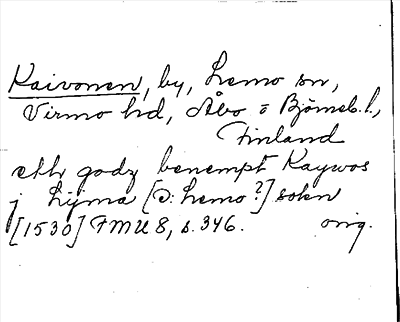 Kaivonen, by, Lemo sn,
Virmo hd, Åbo o Björneb. l.,
Finland
eth godz benempt Kaywos
j Lijma [ɔ: Lemo?] sokn
[1530] FMU 8, s. 346. orig.